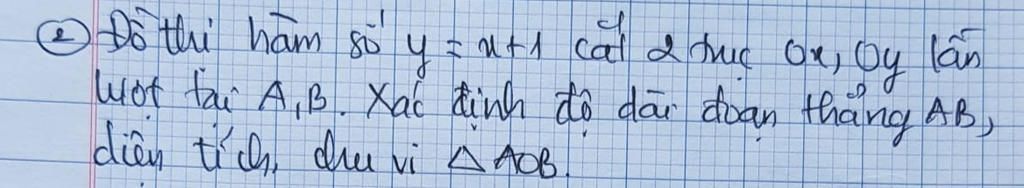 ② Đồ thị hàm số y = x+1 cắt 2 trục Ox, Oy lần
lượt tại A, B. Xác định độ dài đoạn thẳng AB,
diện tích, chu vi △ AOB.